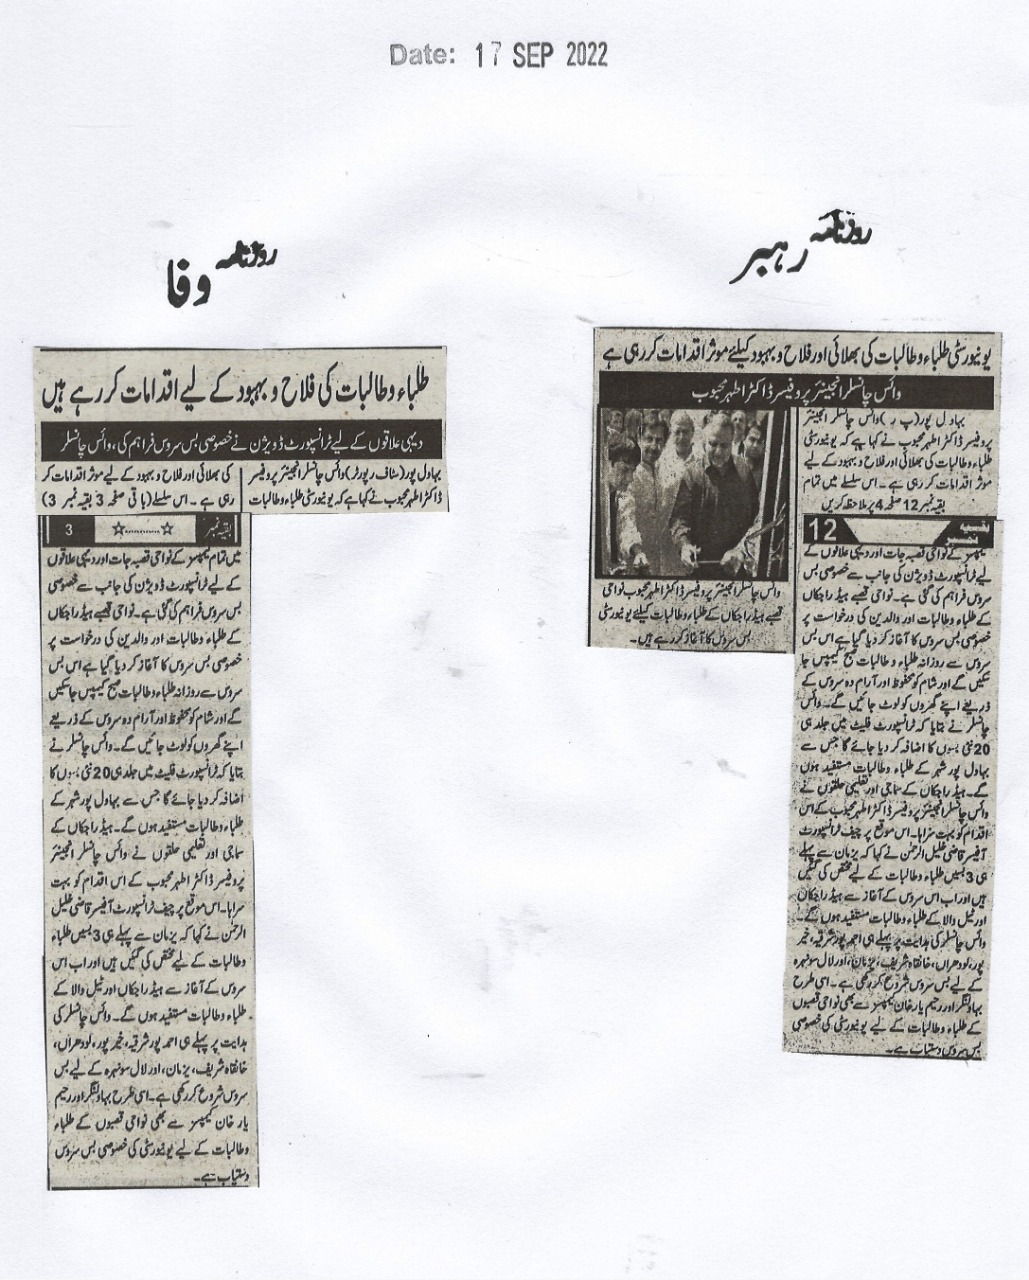 Date: 17 SEP 2022
روزنامہ رہبر
یونیورسٹی طلباء وطالبات کی بھلائی اور فلاح و بہبود کیلئے موثر اقدامات کر رہی ہے
وائس چانسلر انجینئر پروفیسر ڈاکٹر اطہر محبوب
بہاول پور(پ ر)وائس چانسلر انجینئر
پروفیسر ڈاکٹر اطہر محبوب نے کہا ہے کہ یونیورسٹی
طلباء وطالبات کی بھلائی اور فلاح و بہبود کے لیے
موثر اقدامات کر رہی ہے۔ اس سلسلے میں تمام
بقیہ نمبر 12 صفحہ 4 پر ملاحظہ کریں
وائس چانسلر انجینئر پروفیسر ڈاکٹر اطہر محبوب نواحی
قصبے ہیڈ راجکاں کے طلباء وطالبات کیلئے یونیورسٹی
بس سروس کا آغاز کر رہے ہیں۔
بقیہ نمبر 12
کیمپسز کے نواحی قصبہ جات اور دیہی علاقوں کے
لیے ٹرانسپورٹ ڈویژن کی جانب سے خصوصی بس
سروس فراہم کی گئی ہے۔ نواحی قصبے ہیڈ راجکاں
کے طلباء وطالبات اور والدین کی درخواست پر
خصوصی بس سروس کا آغاز کر دیا گیا ہے اس بس
سروس سے روزانہ طلباء وطالبات صبح کیمپس جا
سکیں گے اور شام کو محفوظ اور آرام دہ سروس کے
ذریعے اپنے گھروں کو لوٹ جائیں گے۔ وائس
چانسلر نے بتایا کہ ٹرانسپورٹ فلیٹ میں جلد ہی
20 نئی بسوں کا اضافہ کر دیا جائے گا جس سے
بہاول پور شہر کے طلباء وطالبات مستفید ہوں
گے۔ ہیڈ راجکاں کے سماجی اور تعلیمی حلقوں نے
وائس چانسلر انجینئر پروفیسر ڈاکٹر اطہر محبوب کے اس
اقدام کو بہت سراہا۔ اس موقع پر چیف ٹرانسپورٹ
آفیسر قاضی خلیل الرحمن نے کہا کہ یزمان سے پہلے
ہی 3 بسیں طلباء وطالبات کے لیے مختص کی گئیں
ہیں اور اب اس سروس کے آغاز سے ہیڈ راجکاں
اور ٹیل والا کے طلباء وطالبات مستفید ہوں گے۔
وائس چانسلر کی ہدایت پر پہلے ہی احمد پور شرقیہ، خیر
پور، لودھراں، خانقاہ شریف، یزمان، اور لال سوہنرہ
کے لیے بس سروس شروع کر رکھی ہے۔ اسی طرح
بہاولنگر اور رحیم یار خان کیمپسز سے بھی نواحی قصبوں
کے طلباء وطالبات کے لیے یونیورسٹی کی خصوصی
بس سروس دستیاب ہے۔
روزنامہ وفا
طلباء و طالبات کی فلاح و بہبود کے لیے اقدامات کر رہے ہیں
دیہی علاقوں کے لیے ٹرانسپورٹ ڈویژن نے خصوصی بس سروس فراہم کی، وائس چانسلر
بہاول پور(سٹاف رپورٹر)وائس چانسلر انجینئر پروفیسر
ڈاکٹر اطہر محبوب نے کہا ہے کہ یونیورسٹی طلباء وطالبات
کی بھلائی اور فلاح و بہبود کے لیے موثر اقدامات کر
رہی ہے۔ اس سلسلے (باقی صفحہ 3 بقیہ نمبر 3)
بقیہ نمبر ☆.........☆ 3
میں تمام کیمپسز کے نواحی قصبہ جات اور دیہی علاقوں
کے لیے ٹرانسپورٹ ڈویژن کی جانب سے خصوصی
بس سروس فراہم کی گئی ہے۔ نواحی قصبے ہیڈ راجکاں
کے طلباء وطالبات اور والدین کی درخواست پر
خصوصی بس سروس کا آغاز کر دیا گیا ہے اس بس
سروس سے روزانہ طلباء وطالبات صبح کیمپس جا سکیں
گے اور شام کو محفوظ اور آرام دہ سروس کے ذریعے
اپنے گھروں کو لوٹ جائیں گے۔ وائس چانسلر نے
بتایا کہ ٹرانسپورٹ فلیٹ میں جلد ہی 20 نئی بسوں کا
اضافہ کر دیا جائے گا جس سے بہاول پور شہر کے
طلباء وطالبات مستفید ہوں گے۔ ہیڈ راجکاں کے
سماجی اور تعلیمی حلقوں نے وائس چانسلر انجینئر
پروفیسر ڈاکٹر اطہر محبوب کے اس اقدام کو بہت
سراہا۔ اس موقع پر چیف ٹرانسپورٹ آفیسر قاضی خلیل
الرحمن نے کہا کہ یزمان سے پہلے ہی 3 بسیں طلباء
وطالبات کے لیے مختص کی گئیں ہیں اور اب اس
سروس کے آغاز سے ہیڈ راجکاں اور ٹیل والا کے
طلباء وطالبات مستفید ہوں گے۔ وائس چانسلر کی
ہدایت پر پہلے ہی احمد پور شرقیہ، خیر پور، لودھراں،
خانقاہ شریف، یزمان، اور لال سوہنرہ کے لیے بس
سروس شروع کر رکھی ہے۔ اسی طرح بہاولنگر اور رحیم
یار خان کیمپسز سے بھی نواحی قصبوں کے طلباء
وطالبات کے لیے یونیورسٹی کی خصوصی بس سروس
دستیاب ہے۔